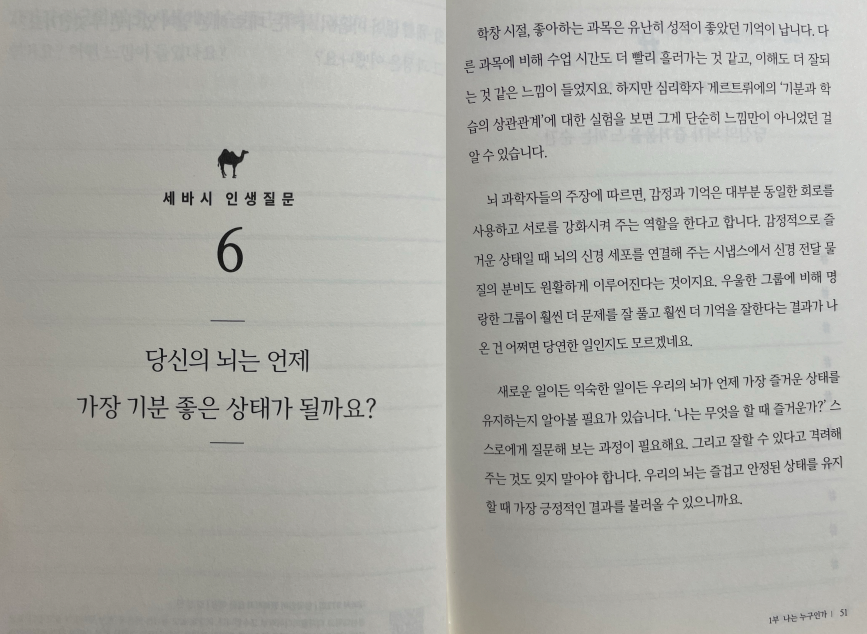 세바시 인생질문
6
당신의 뇌는 언제
가장 기분 좋은 상태가 될까요?
학창 시절, 좋아하는 과목은 유난히 성적이 좋았던 기억이 납니다. 다
른 과목에 비해 수업 시간도 더 빨리 흘러가는 것 같고, 이해도 더 잘되
는 것 같은 느낌이 들었지요. 하지만 심리학자 게르트뤼에의 ‘기분과 학
습의 상관관계’에 대한 실험을 보면 그게 단순히 느낌만이 아니었던 걸
알 수 있습니다.
뇌 과학자들의 주장에 따르면, 감정과 기억은 대부분 동일한 회로를
사용하고 서로를 강화시켜 주는 역할을 한다고 합니다. 감정적으로 즐
거운 상태일 때 뇌의 신경 세포를 연결해 주는 시냅스에서 신경 전달 물
질의 분비도 원활하게 이루어진다는 것이지요. 우울한 그룹에 비해 명
랑한 그룹이 훨씬 더 문제를 잘 풀고 훨씬 더 기억을 잘한다는 결과가 나
온 건 어쩌면 당연한 일인지도 모르겠네요.
새로운 일이든 익숙한 일이든 우리의 뇌가 언제 가장 즐거운 상태를
유지하는지 알아볼 필요가 있습니다. ‘나는 무엇을 할 때 즐거운가?’ 스
스로에게 질문해 보는 과정이 필요해요. 그리고 잘할 수 있다고 격려해
주는 것도 잊지 말아야 합니다. 우리의 뇌는 즐겁고 안정된 상태를 유지
할 때 가장 긍정적인 결과를 불러올 수 있으니까요.
1부 나는 누구인가 | 51